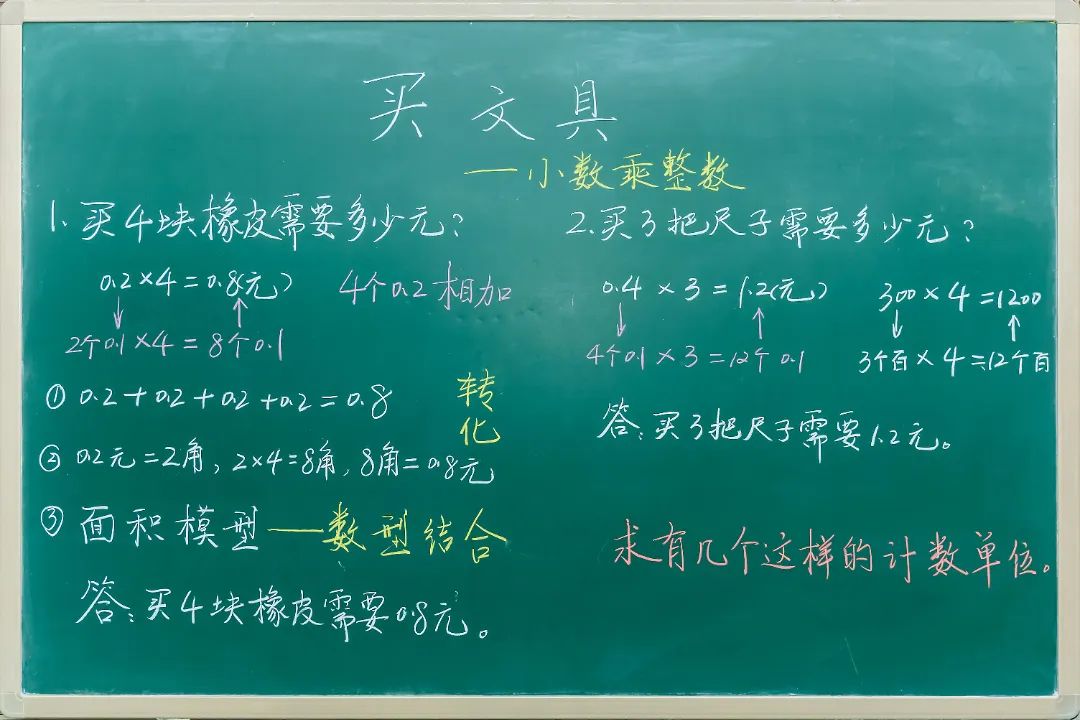 买文具
—小数乘整数
1.买4块橡皮需要多少元？
0.2×4=0.8(元)
4个0.2相加
2个0.1×4=8个0.1
①0.2+0.2+0.2+0.2=0.8
转化
②0.2元=2角，2×4=8角，8角=0.8元
③面积模型——数型结合
答：买4块橡皮需要0.8元。
2.买3把尺子需要多少元？
0.4×3=1.2(元)
300×4=1200
4个0.1×3=12个0.1
3个百×4=12个百
答：买3把尺子需要1.2元。
求有几个这样的计数单位。